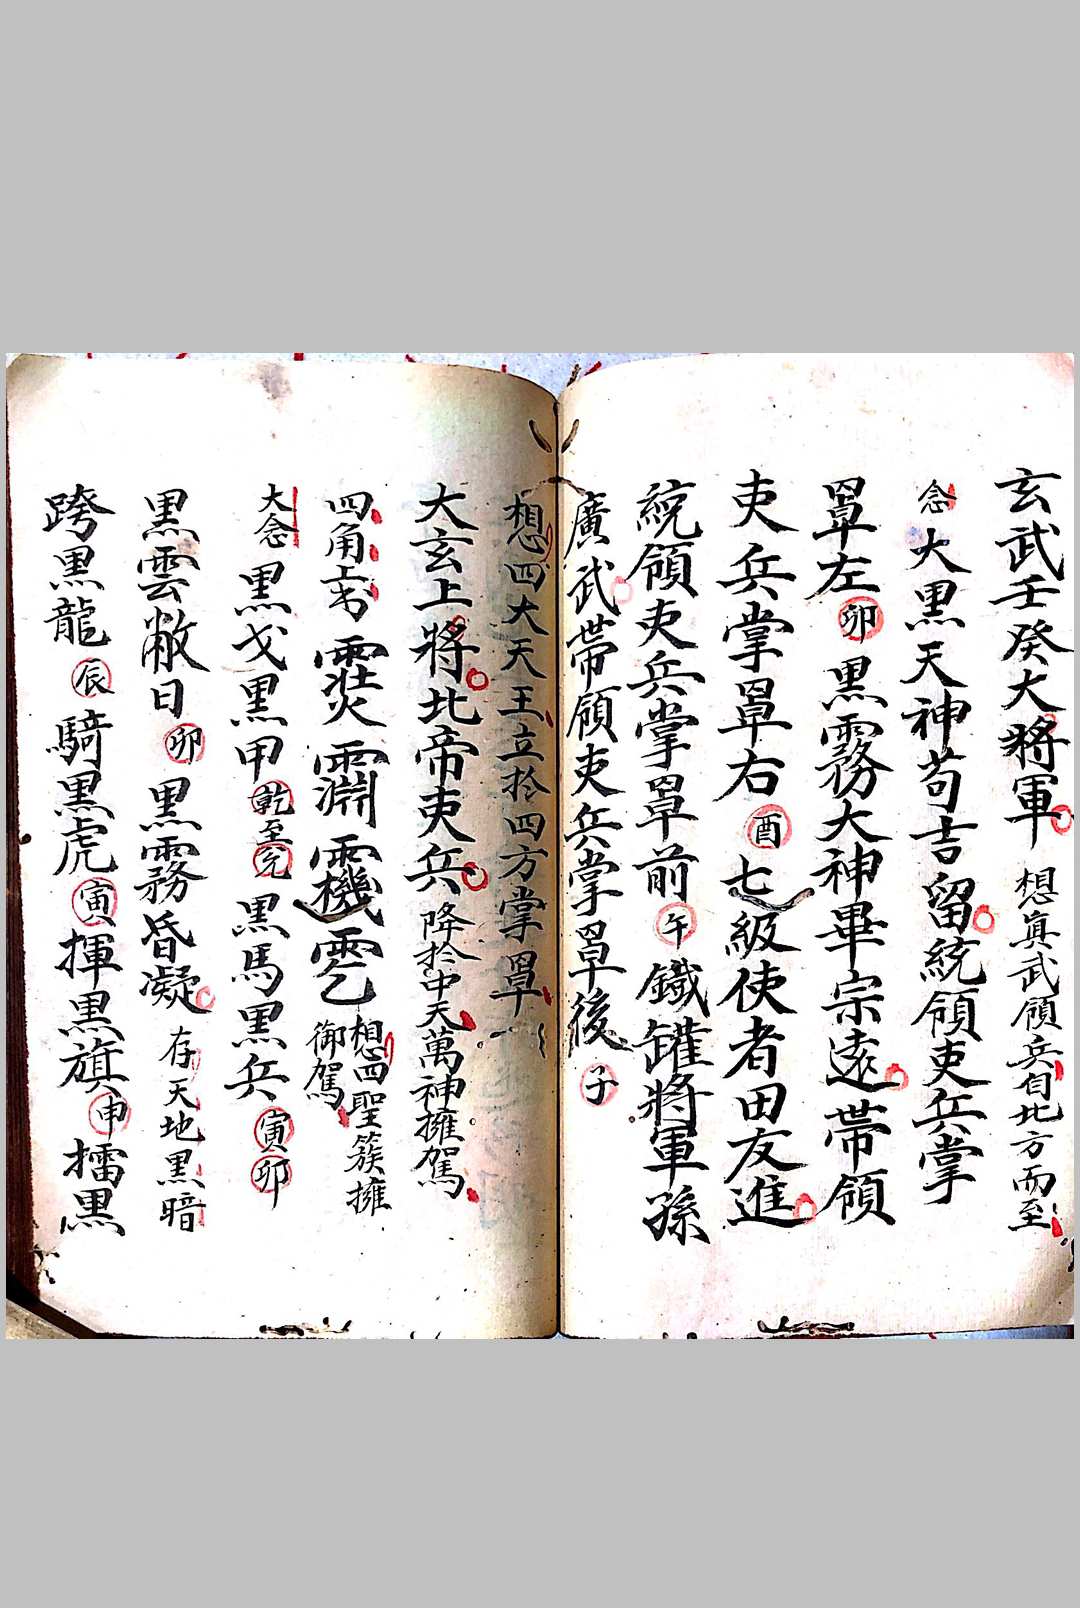 玄武壬癸大將軍 想眞武領兵自北方而至
念 大黒天神苟吉留統領吏兵掌
罩左 卯 黒霧大神畢宗遠帶領
吏兵掌罩右 酉 七級使者田友進
統領吏兵掌罩前 午 鐵鑵將軍孫
廣武帶領吏兵掌罩後 子
想四大天王立扵四方掌罩
大玄上將北帝吏兵 降扵中天萬神擁駕
四角 想四聖簇擁
御駕
大念 黒戈黒甲 乾至兊 黒馬黒兵 寅卯
黒雲敝日 卯 黒霧昏凝 存天地黒暗
跨黒龍 辰 騎黒虎 寅 揮黒旗 申 擂黒